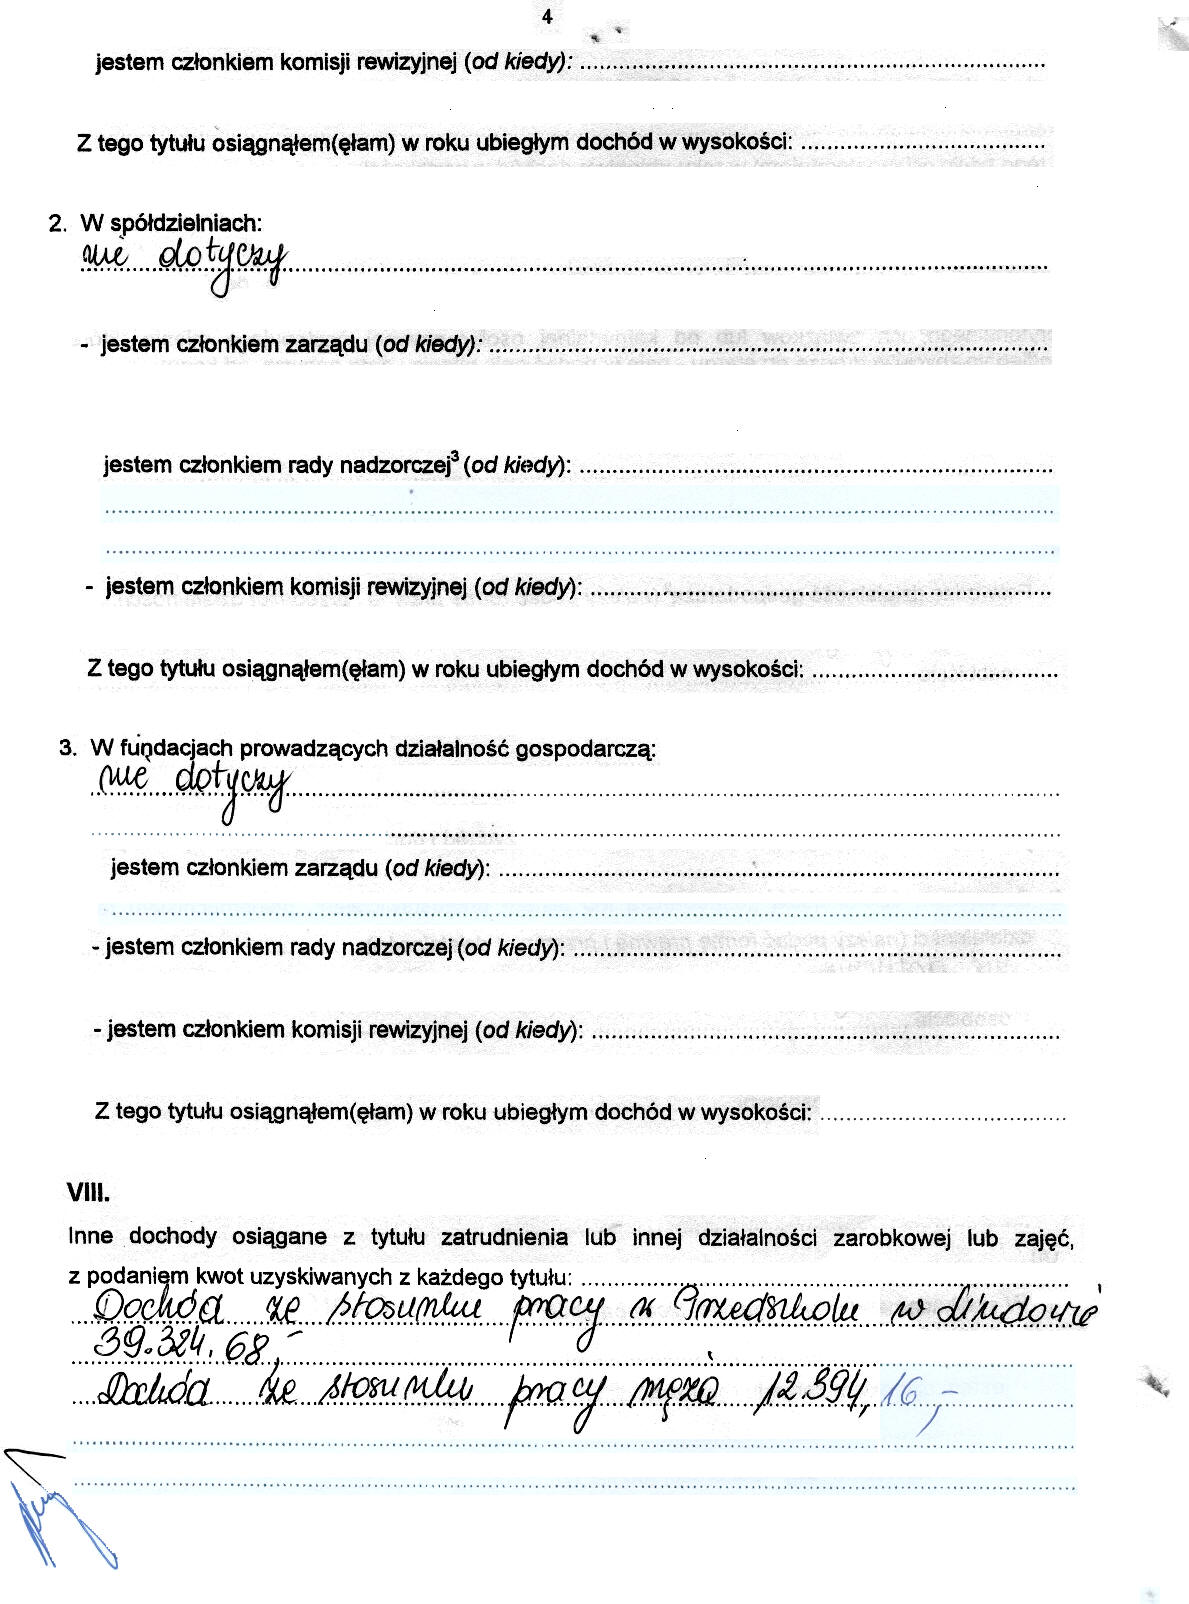 4
jestem członkiem komisji rewizyjnej (od kiedy): ........................................
Z tego tytułu osiągnąłem(ęłam) w roku ubiegłym dochód w wysokości: ........................................
2. W spółdzielniach:
nie dotyczy
- jestem członkiem zarządu (od kiedy): ........................................
jestem członkiem rady nadzorczej³ (od kiedy): ........................................
- jestem członkiem komisji rewizyjnej (od kiedy): ........................................
Z tego tytułu osiągnąłem(ęłam) w roku ubiegłym dochód w wysokości: ........................................
3. W fundacjach prowadzących działalność gospodarczą:
nie dotyczy
jestem członkiem zarządu (od kiedy): ........................................
- jestem członkiem rady nadzorczej (od kiedy): ........................................
- jestem członkiem komisji rewizyjnej (od kiedy): ........................................
Z tego tytułu osiągnąłem(ęłam) w roku ubiegłym dochód w wysokości: ........................................
VIII.
Inne dochody osiągane z tytułu zatrudnienia lub innej działalności zarobkowej lub zajęć,
z podaniem kwot uzyskiwanych z każdego tytułu: ........................................
Dochód ze stosunku pracy w Przedszkolu w
39.324.68,-
Dochód ze stosunku pracy męża 12.394,16,-